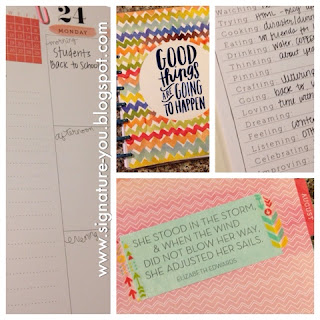 24
MONDAY
morning
Students
Back to School
afternoon
evening
www.signature-you.blogspot.com
GOOD
things
ARE GOING
TO HAPPEN
Trying
Cooking
Eating
Drinking water
Calling
Texting
Pinning
Crafting
Going back to
Loving time
Dreaming
Feeling
Listening
Celebrating
AUGUST
SHE STOOD IN THE STORM,
& WHEN THE WIND
DID NOT BLOW HER WAY,
SHE ADJUSTED HER SAILS.
ELIZABETH EDWARDS